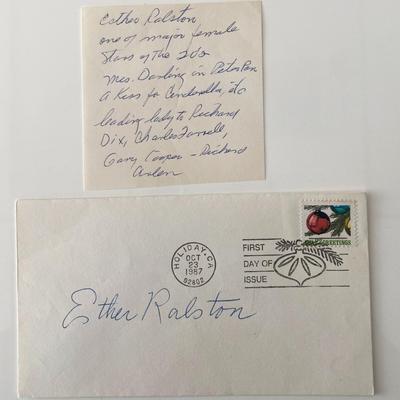 Esther Ralston
one of major female
Stars of the 20s
Mrs. Darling in Peter Pan
A Kiss for Cinderella, etc
leading lady to Richard
Dix, Charles Farrell,
Gary Cooper - Richard
Arlen
GREETINGS
HOLIDAY, CA
OCT
23
1987
92802
FIRST
DAY OF
ISSUE
Esther Ralston